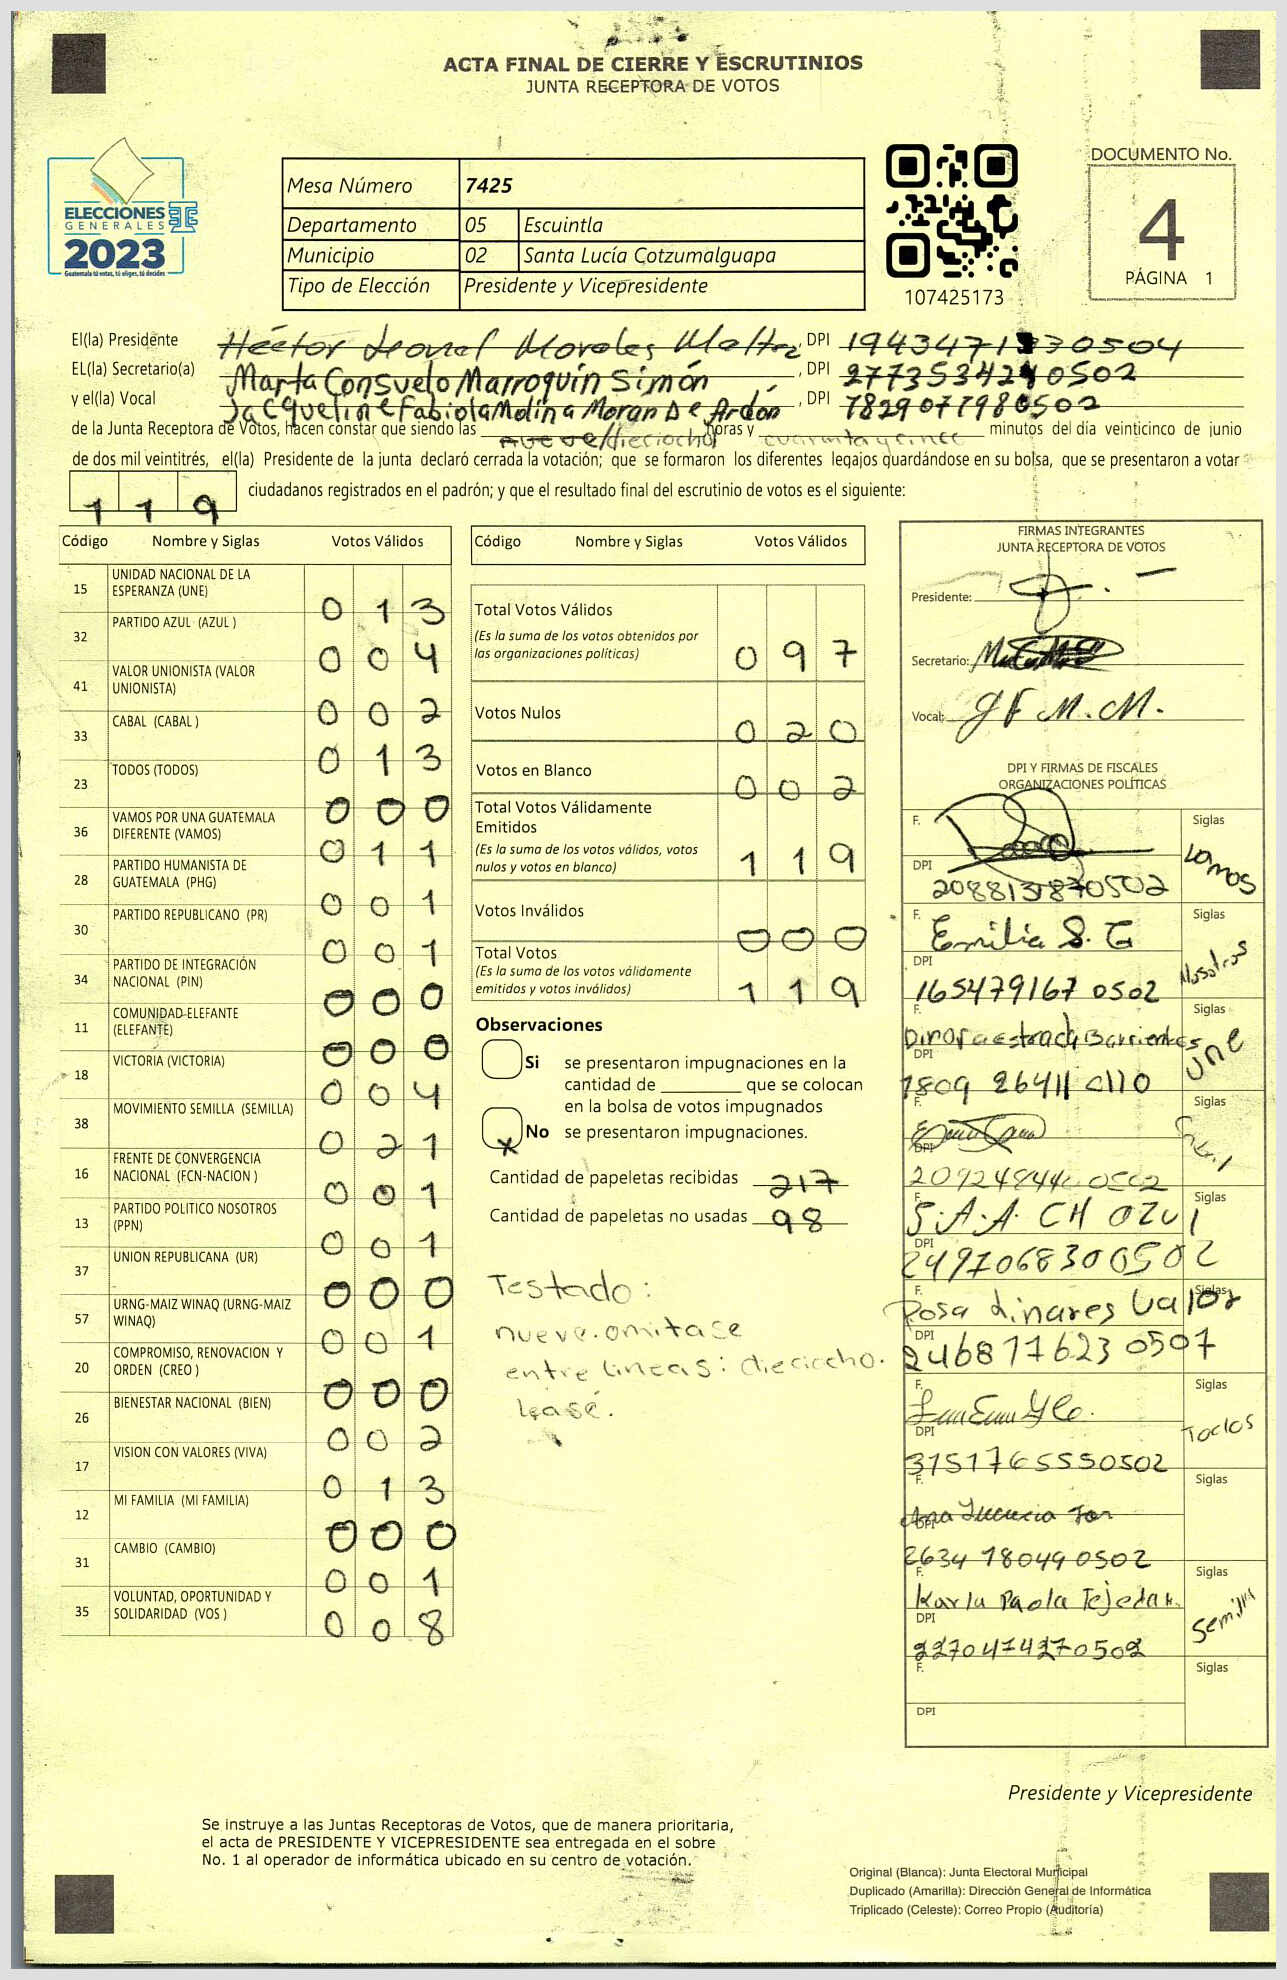 ACTA FINAL DE CIERRE Y ESCRUTINIOS
JUNTA RECEPTORA DE VOTOS
ELECCIONES
GENERALES
2023
Guatemala tú votas, tú eliges, tú decides
Mesa Número 7425
Departamento 05 Escuintla
Municipio 02 Santa Lucía Cotzumalguapa
Tipo de Elección Presidente y Vicepresidente
107425173
DOCUMENTO No.
4
PÁGINA 1
El(la) Presidente Héctor Leonel Morales, DPI
EL(la) Secretario(a) Marta Consuelo Marroquín Simón, DPI
y el(la) Vocal Jacqueline Fabiola Molina Moran De Ardón, DPI
de la Junta Receptora de Votos, hacen constar que siendo las nueve/dieciocho horas y cuarenta y cinco minutos del día veinticinco de junio
de dos mil veintitrés, el(la) Presidente de la junta declaró cerrada la votación; que se formaron los diferentes legajos guardándose en su bolsa, que se presentaron a votar
119 ciudadanos registrados en el padrón; y que el resultado final del escrutinio de votos es el siguiente:
Código Nombre y Siglas Votos Válidos
15 UNIDAD NACIONAL DE LA ESPERANZA (UNE) 013
32 PARTIDO AZUL (AZUL ) 004
41 VALOR UNIONISTA (VALOR UNIONISTA) 002
33 CABAL (CABAL ) 013
23 TODOS (TODOS) 000
36 VAMOS POR UNA GUATEMALA DIFERENTE (VAMOS) 011
28 PARTIDO HUMANISTA DE GUATEMALA (PHG) 001
30 PARTIDO REPUBLICANO (PR) 001
34 PARTIDO DE INTEGRACIÓN NACIONAL (PIN) 000
11 COMUNIDAD ELEFANTE (ELEFANTE) 000
18 VICTORIA (VICTORIA) 004
38 MOVIMIENTO SEMILLA (SEMILLA) 021
16 FRENTE DE CONVERGENCIA NACIONAL (FCN-NACION ) 001
13 PARTIDO POLITICO NOSOTROS (PPN) 001
37 UNION REPUBLICANA (UR) 000
57 URNG-MAIZ WINAQ (URNG-MAIZ WINAQ) 001
20 COMPROMISO, RENOVACION Y ORDEN (CREO ) 000
26 BIENESTAR NACIONAL (BIEN) 002
17 VISION CON VALORES (VIVA) 013
12 MI FAMILIA (MI FAMILIA) 000
31 CAMBIO (CAMBIO) 001
35 VOLUNTAD, OPORTUNIDAD Y SOLIDARIDAD (VOS ) 008
Código Nombre y Siglas Votos Válidos
Total Votos Válidos 097
(Es la suma de los votos obtenidos por
las organizaciones políticas)
Votos Nulos 020
Votos en Blanco 002
Total Votos Válidamente
Emitidos 119
(Es la suma de los votos válidos, votos
nulos y votos en blanco)
Votos Inválidos 000
Total Votos 119
(Es la suma de los votos válidamente
emitidos y votos inválidos)
Observaciones
Si se presentaron impugnaciones en la
cantidad de ________ que se colocan
en la bolsa de votos impugnados
x No se presentaron impugnaciones.
Cantidad de papeletas recibidas 217
Cantidad de papeletas no usadas 98
Testado:
nueve. omitase
entre lineas: dieciocho.
lease.
FIRMAS INTEGRANTES
JUNTA RECEPTORA DE VOTOS
Presidente:
Secretario:
Vocal: JF M.M.
DPI Y FIRMAS DE FISCALES
ORGANIZACIONES POLÍTICAS
F. Siglas Vamos
DPI 2088131870502
F. Emilia S. G Siglas Nosotros
DPI 165479167 0502
F. Dinora estrada Barrientos Siglas UNE
DPI 1809 26411 0110
F. Siglas
DPI
F. S.A.A. CH Siglas azul
DPI 2497068300502
F. Rosa Linares Siglas Valor
DPI 246877623 0507
F. Siglas Todos
DPI 3151765550502
F. Siglas
DPI 2634 78049 0502
F. Karla Paola Siglas Semilla
DPI 2270474270502
F. Siglas
DPI
Presidente y Vicepresidente
Se instruye a las Juntas Receptoras de Votos, que de manera prioritaria,
el acta de PRESIDENTE Y VICEPRESIDENTE sea entregada en el sobre
No. 1 al operador de informática ubicado en su centro de votación.
Original (Blanca): Junta Electoral Municipal
Duplicado (Amarilla): Dirección General de Informática
Triplicado (Celeste): Correo Propio (Auditoría)